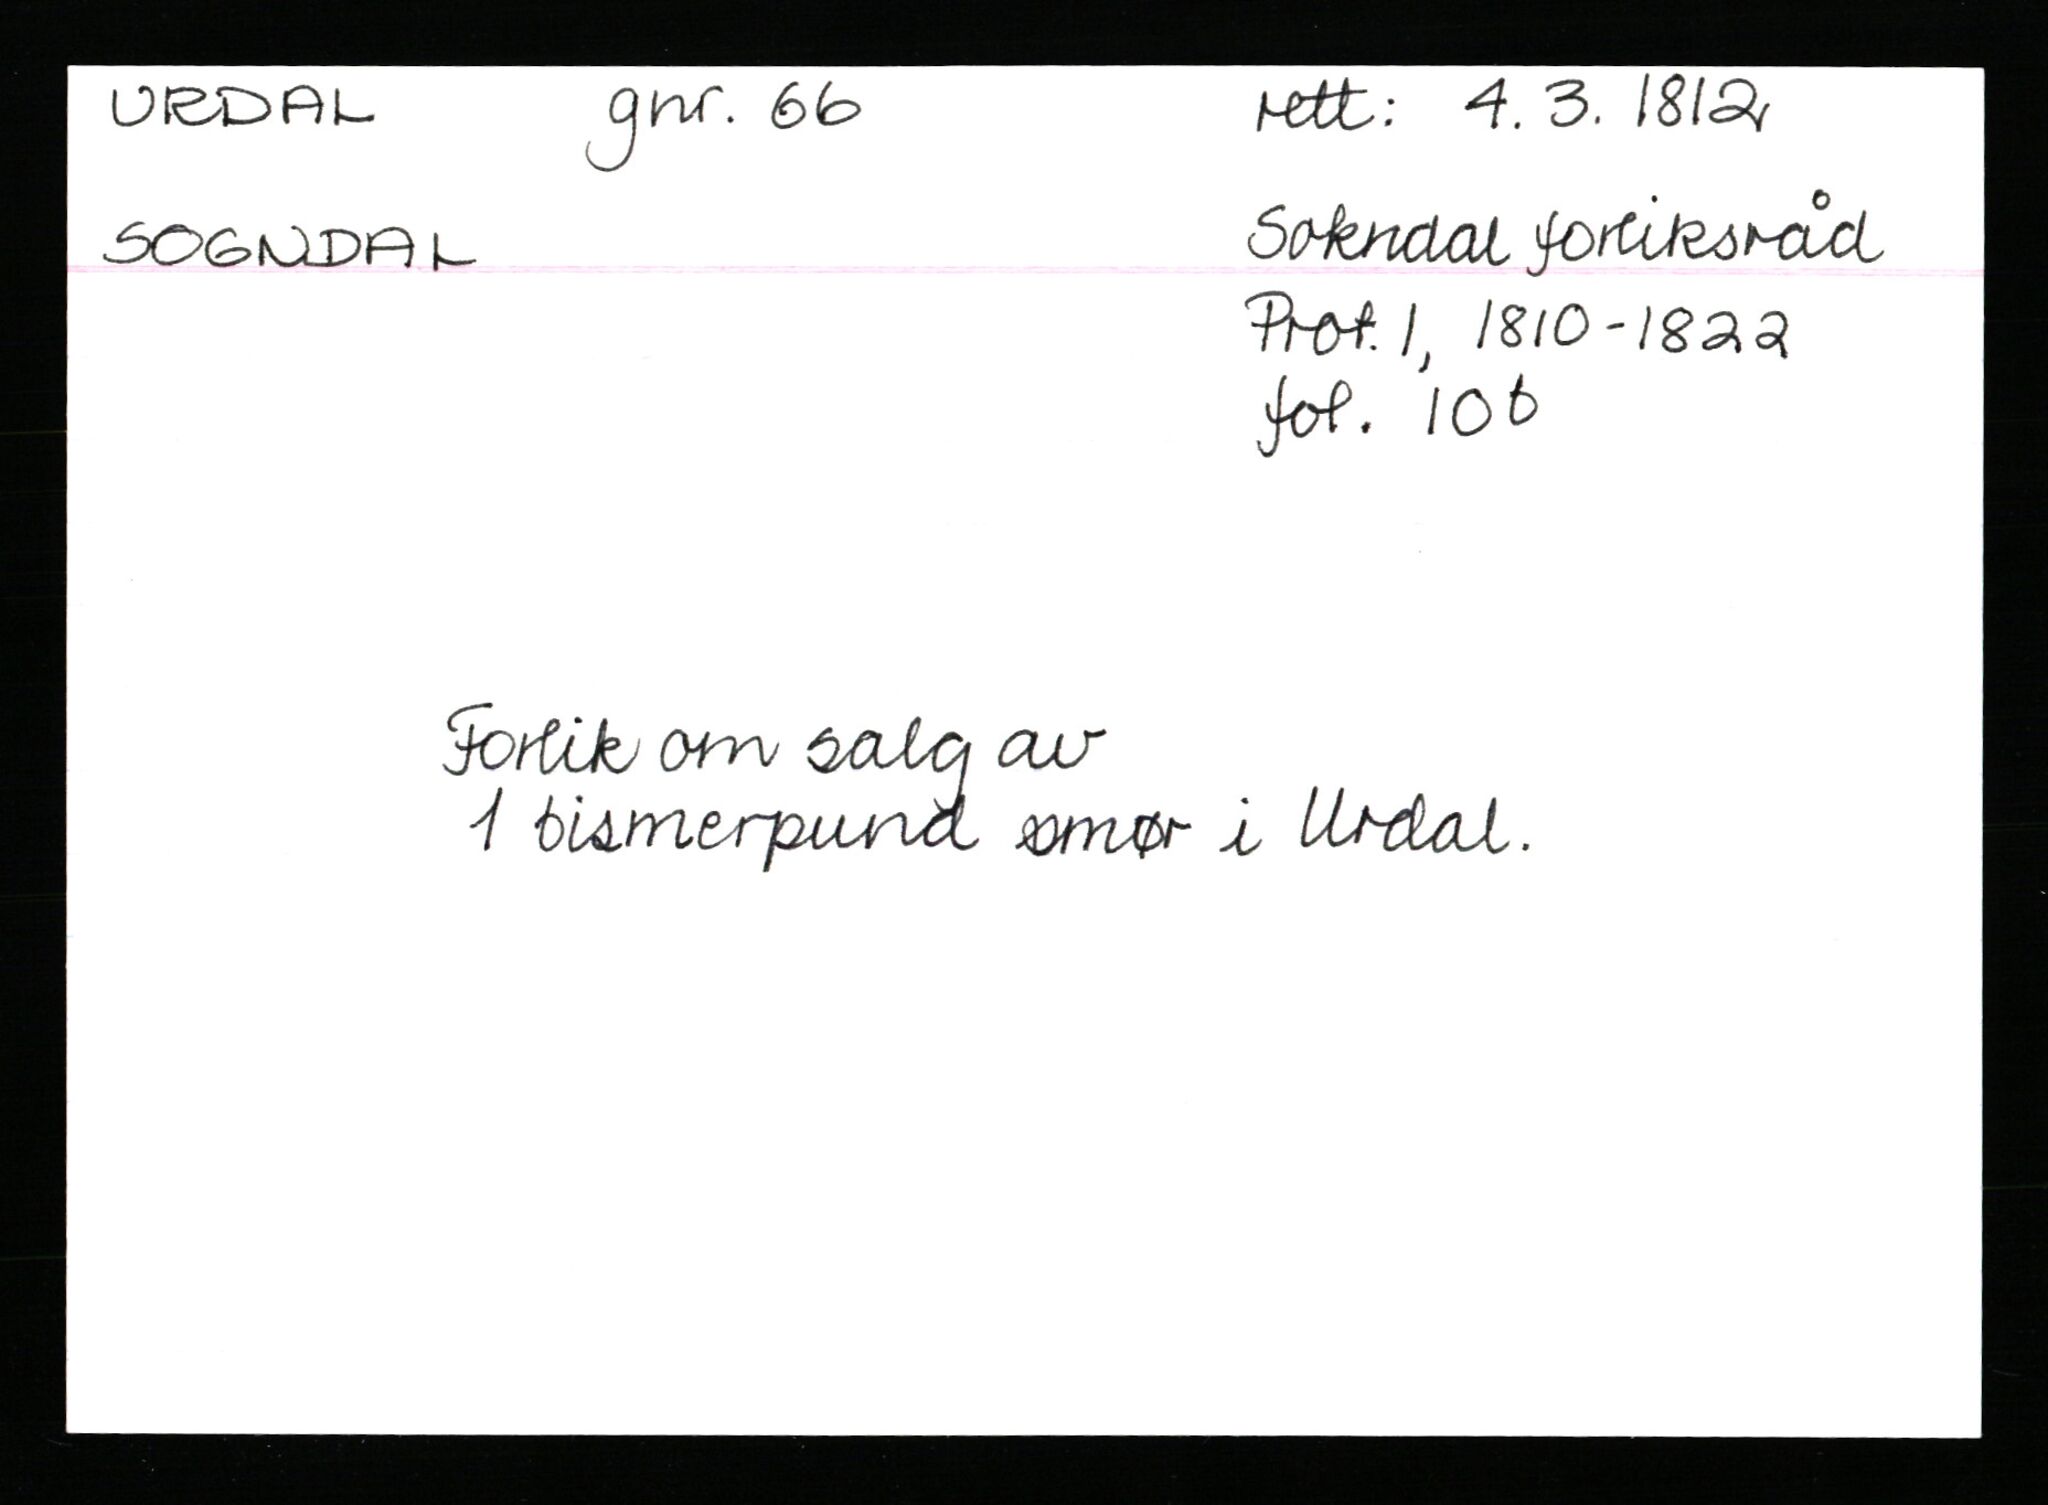 URDAL gnr. 66 rett: 4. 3. 1812
SOGNDAL Sokndal forliksråd
Prot. 1, 1810-1822
fol. 10b
Forlik om salg av
1 bismerpund smør i Urdal.